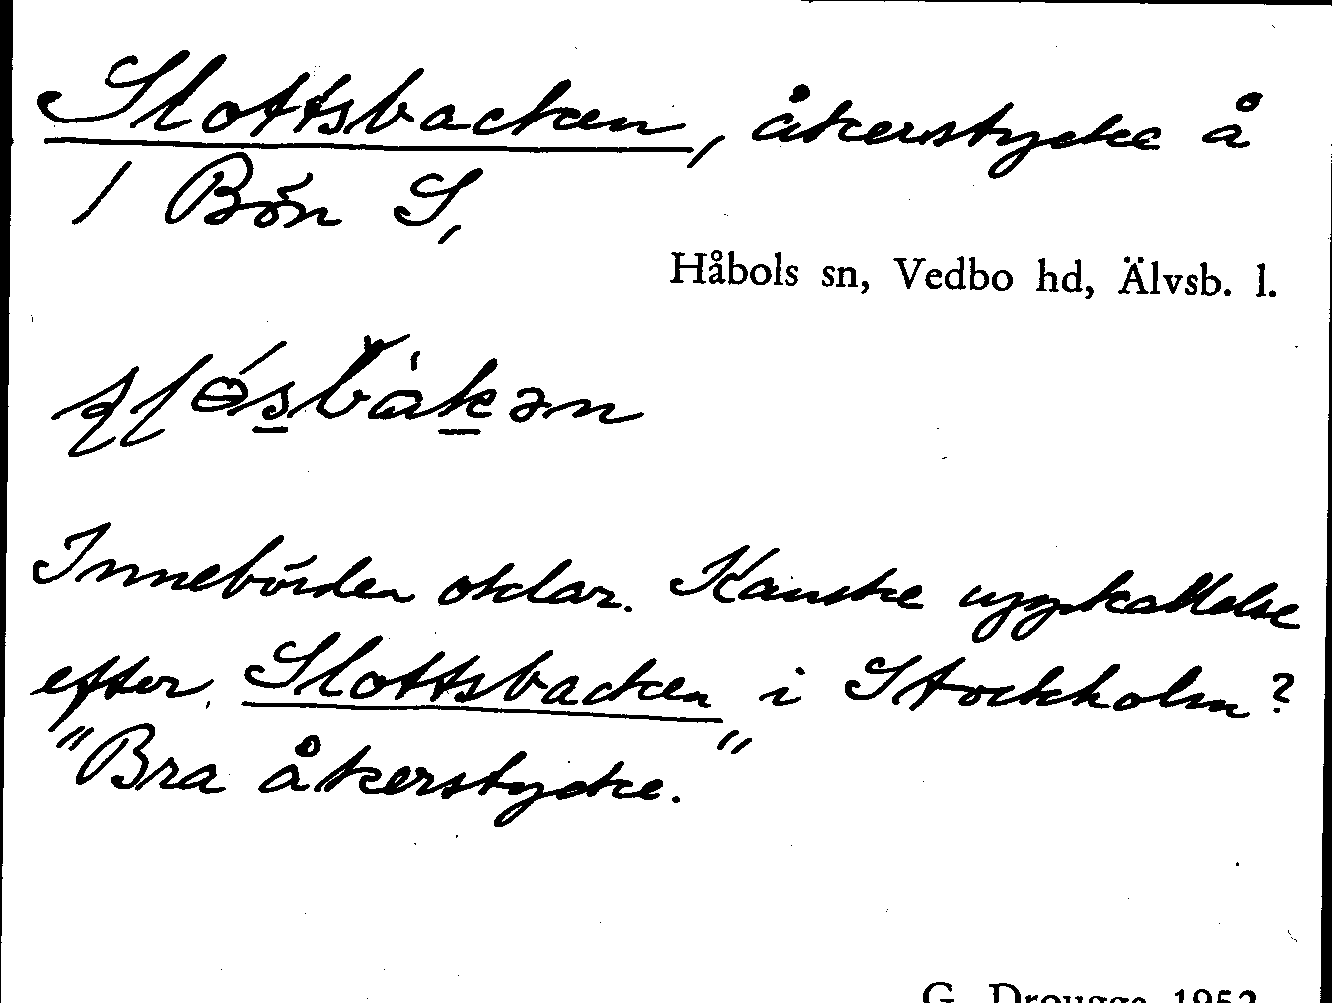 Slottsbacken, åkerstycke å
1 Bön S,
Håbols sn, Vedbo hd, Älvsb. l.
Innebörden oklar. Kanske uppkallelse
efter Slottsbacken i Stockholm?
"Bra åkerstycke."
G. Drougge 1952